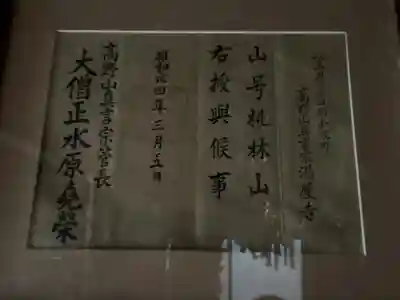 高野山真言宗満願寺
山号桃林山
右授與候事
昭和廿四年三月五日
高野山真言宗管長
大僧正水原堯榮